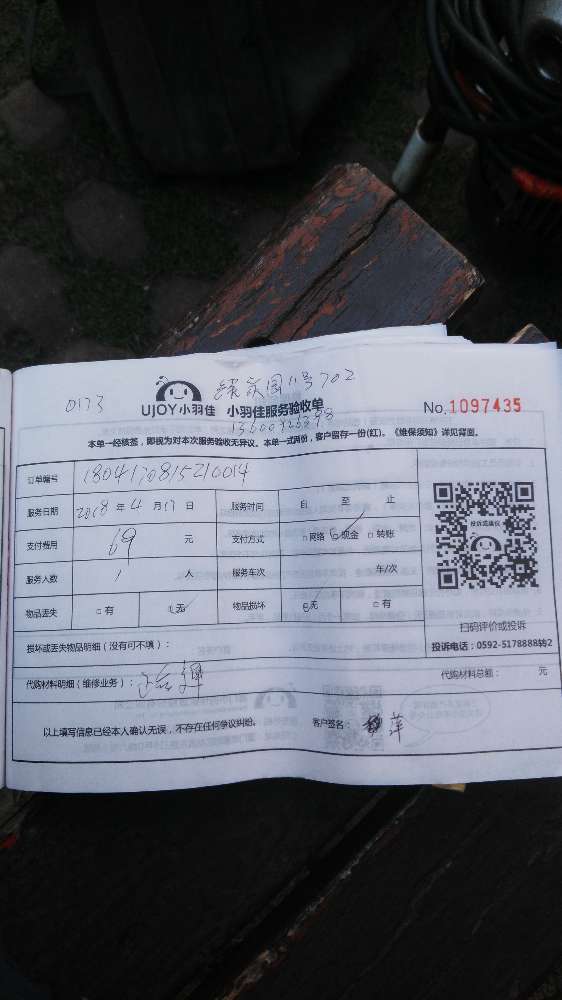 0173
UJOY小羽佳 小羽佳服务验收单
No.1097435
本单一经核签,即视为对本次服务验收无异议。本单一式两份,客户留存一份(红)。《维保须知》详见背面。
订单编号
服务日期 2018 年 4 月 17 日 服务时间 自 至 止
支付费用 69 元 支付方式 □网络 □✓现金 □转账
服务人数 1 人 服务车次 车/次
物品丢失 □有 □✓无 物品损坏 □✓无 □有
投诉或建议
扫码评价或投诉
投诉电话:0592-5178888转2
损坏或丢失物品明细(没有可不填):
代购材料明细(维修业务): 代购材料总额: 元
以上填写信息已经本人确认无误,不存在任何争议纠纷。 客户签名: 萍